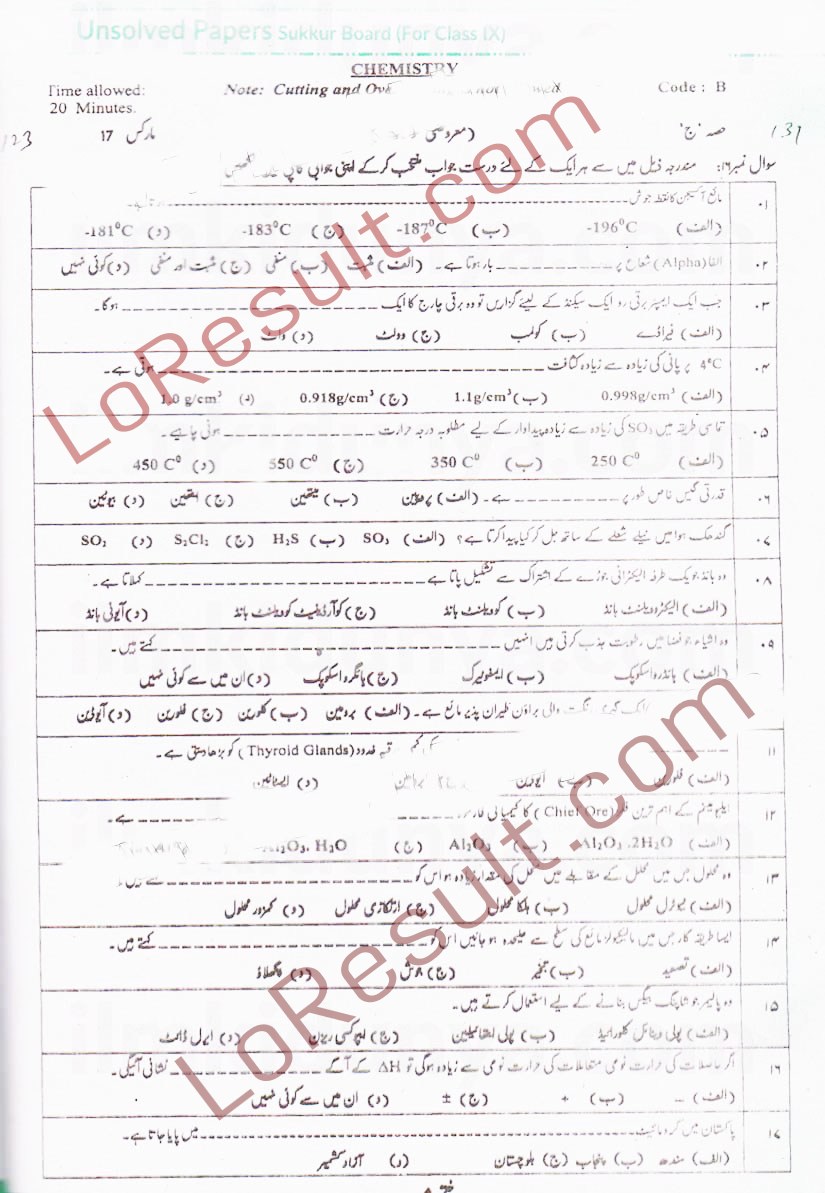 Unsolved Papers Sukkur Board (For Class IX)
CHEMISTRY
Time allowed: 20 Minutes.
Note: Cutting and Ove
Code : B
حصہ 'ج' (معروضی مارکس 17
سوال نمبر ۱۶: مندرجہ ذیل میں سے ہر ایک کے لئے درست جواب منتخب کر کے اپنی جوابی کاپی
۰۱ مائع آکسیجن کا نقطہ جوش ہوتا ہے۔
(الف) -196⁰C (ب) -187⁰C (ج) -183⁰C (د) -181⁰C
۰۲ الفا (Alpha) شعاع پر بار ہوتا ہے۔ (الف) مثبت (ب) منفی (ج) مثبت اور منفی (د) کوئی نہیں
۰۳ جب ایک ایمپیئر برقی رو ایک سیکنڈ کے لیئے گزاریں تو وہ برقی چارج کا ایک ہوگا۔
(الف) فیراڈے (ب) کولمب (ج) وولٹ (د) واٹ
۰۴ 4⁰C پر پانی کی زیادہ سے زیادہ کثافت ہوتی ہے۔
(الف) 0.998g/cm³ (ب) 1.1g/cm³ (ج) 0.918g/cm³ (د) 1.0 g/cm³
۰۵ تماسی طریقہ میں SO₃ کی زیادہ سے زیادہ پیداوار کے لیے مطلوبہ درجہ حرارت ہونی چاہیے۔
(الف) 250 C⁰ (ب) 350 C⁰ (ج) 550 C⁰ (د) 450 C⁰
۰۶ قدرتی گیس خاص طور پر ہے۔ (الف) پروپین (ب) میتھین (ج) ایتھین (د) بیوٹین
۰۷ گندھک ہوا میں نیلے شعلے کے ساتھ جل کر کیا پیدا کرتا ہے؟ (الف) SO₃ (ب) H₂S (ج) S₂Cl₂ (د) SO₂
۰۸ وہ بانڈ جو یک طرفہ الیکٹرانی جوڑے کے اشتراک سے تشکیل پاتا ہے کہلاتا ہے۔
(الف) الیکٹرو ویلنٹ بانڈ (ب) کوویلنٹ بانڈ (ج) کوآرڈینیٹ کوویلنٹ بانڈ (د) آیونی بانڈ
۰۹ وہ اشیاء جو فضا میں رطوبت جذب کرتی ہیں انہیں کہتے ہیں۔
(الف) ہائڈرواسکوپک (ب) ایفلوریک (ج) ہائگرواسکوپک (د) ان میں سے کوئی نہیں
ایک گہری رنگت والی براؤن طیران پذیر مائع ہے۔ (الف) برومین (ب) کلورین (ج) فلورین (د) آیوڈین
۱۱ کی کمی غدود (Thyroid Glands) کو بڑھا دیتی ہے۔
(الف) فلورین (ب) آیوڈین (د) ایسٹاٹین
۱۲ ایلیومینم کے اہم ترین (Chief Ore) کا کیمیائی ہے۔
(الف) Al₂O₃.2H₂O (ب) Al₂O₃ (ج)
۱۳ وہ محلول جس میں محلل کے مقابلے میں منحل کی مقدار زیادہ ہو اس کو
(الف) نیوٹرل محلول (ب) ہلکا محلول (ج) ارتکازی محلول (د) کمزور محلول
۱۴ ایسا طریقہ کار جس میں مالیکیولز مائع کی سطح سے علیحدہ ہو جائیں اس کو کہتے ہیں۔
(الف) تصعید (ب) تبخیر (ج) جوش (د) پگھلاؤ
۱۵ وہ پالیمر جو شاپنگ بیگس بنانے کے لیے استعمال کرتے ہیں۔
(الف) پولی وینائل کلورائیڈ (ب) پولی ایتھائیلین (ج) ایپوکسی ریزن (د) ایرل ڈائٹ
۱۶ اگر حاصلات کی حرارت نوعی متعاملات کی حرارت نوعی سے زیادہ ہوگی تو ΔH کے آگے نشانی آئیگی۔
(الف) – (ب) + (ج) ± (د) ان میں سے کوئی نہیں
۱۷ پاکستان میں کرومائیٹ میں پایا جاتا ہے۔
(الف) سندھ (ب) پنجاب (ج) بلوچستان (د) آزاد کشمیر
LoResult.com
LoResult.com